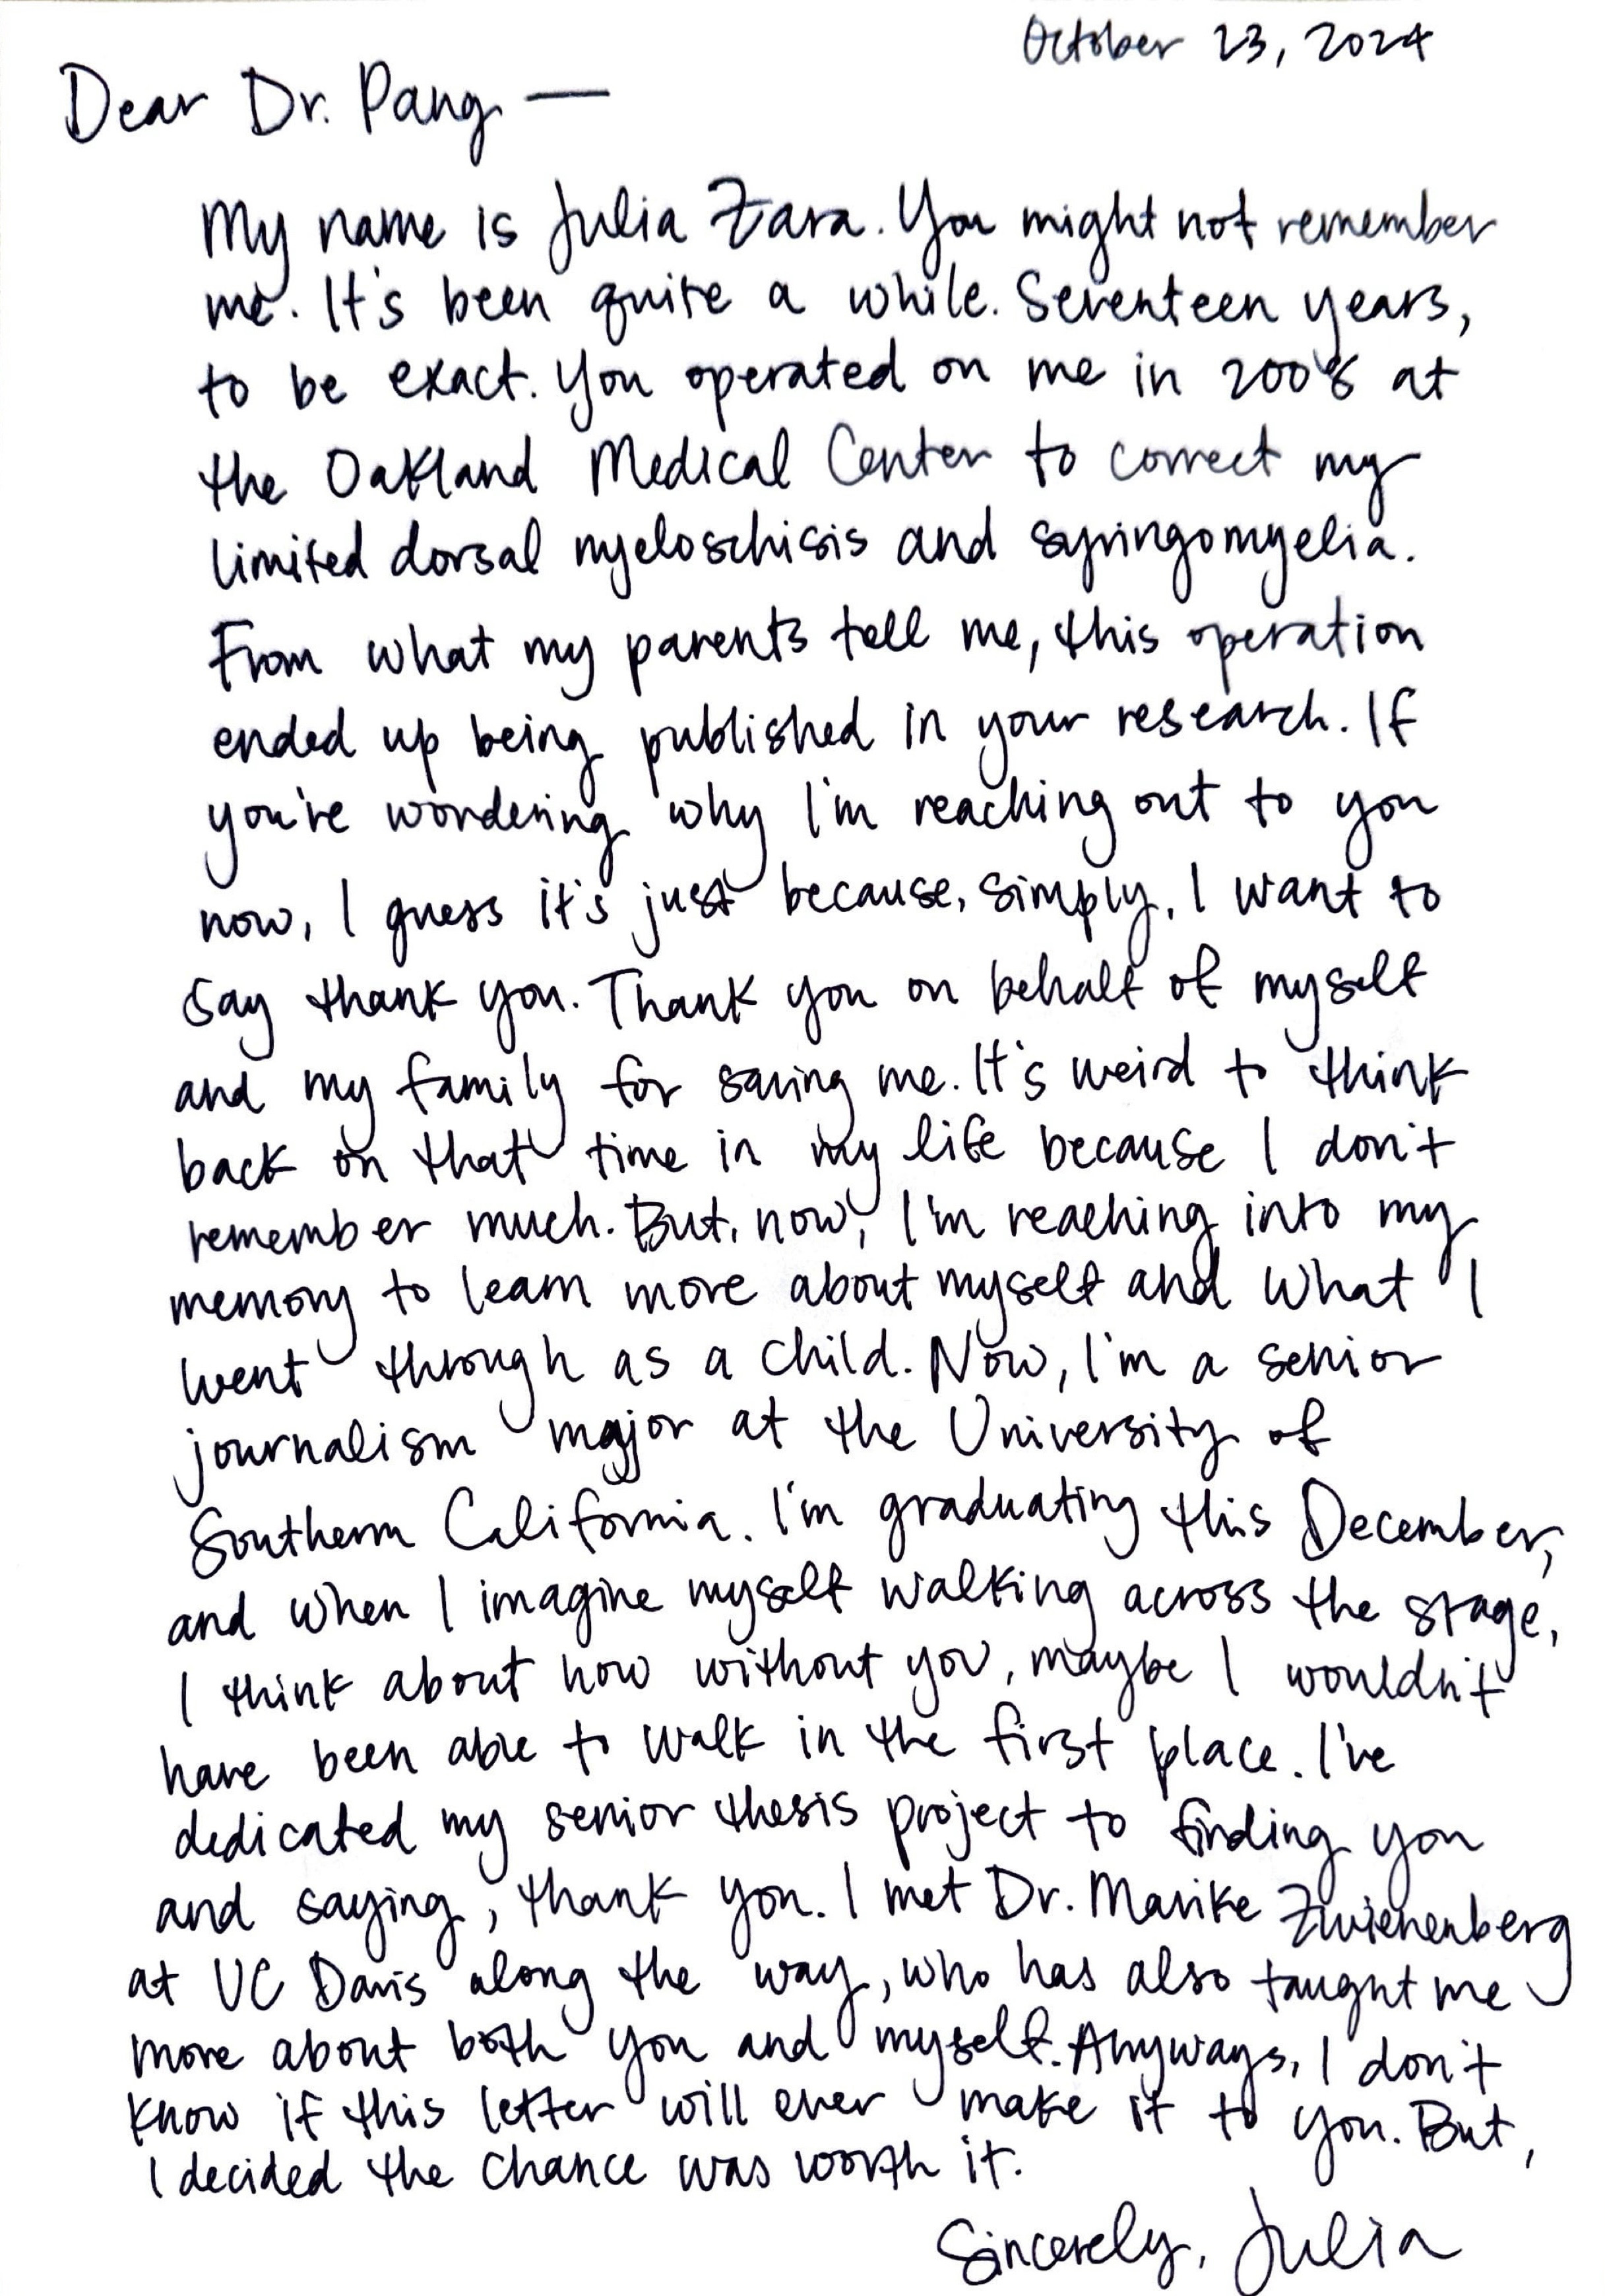 October 23, 2024
Dear Dr. Pang —
My name is Julia Zara. You might not remember
me. It's been quite a while. Seventeen years,
to be exact. You operated on me in 2008 at
the Oakland Medical Center to correct my
limited dorsal myeloschisis and syringomyelia.
From what my parents tell me, this operation
ended up being published in your research. If
you're wondering why I'm reaching out to you
now, I guess it's just because, simply, I want to
say thank you. Thank you on behalf of myself
and my family for saving me. It's weird to think
back on that time in my life because I don't
remember much. But, now, I'm reaching into my
memory to learn more about myself and what I
went through as a child. Now, I'm a senior
journalism major at the University of
Southern California. I'm graduating this December,
and when I imagine myself walking across the stage,
I think about how without you, maybe I wouldn't
have been able to walk in the first place. I've
dedicated my senior thesis project to finding you
and saying, thank you. I met Dr. Marike Zwienenberg
at UC Davis along the way, who has also taught me
more about both you and myself. Anyways, I don't
know if this letter will ever make it to you. But,
I decided the chance was worth it.
Sincerely, Julia